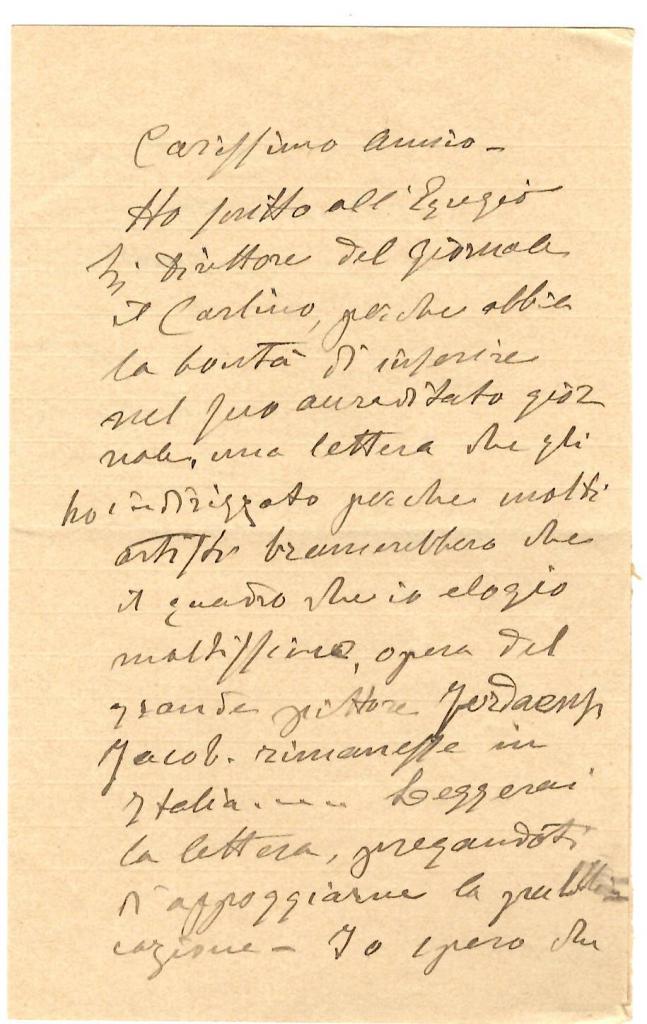 Carissimo amico -
Ho scritto all'Egregio
Sig Direttore del giornale
il Carlino, perche abbia
la bontà di inserire
nel suo accreditato gior
nale, una lettera che gli
ho indirizzato perche molti
artisti bramerebbero che
il quadro che io elogio
moltissimo, opera del
grande pittore Jordaens
Jacob. rimanesse in
Italia.... Leggerai
la lettera, pregandoti
di appoggiarne la pubbli
cazione - Io spero che